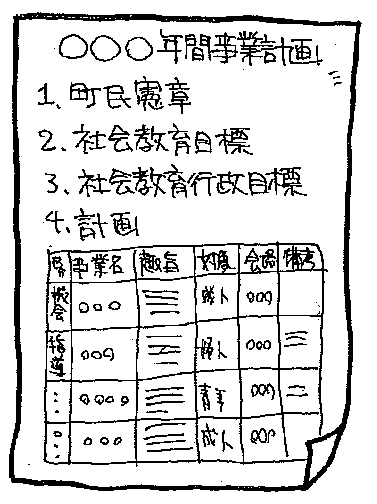 ○○○年間事業計画
1.町民憲章
2.社会教育目標
3.社会教育行政目標
4.計画
事業名 趣旨 対象 会場 備考
機会 ○○○ 成人 ○○○
指導 ○○○ 婦人 ○○○
○○○○ 青年 ○○○
○○○ 成人 ○○○